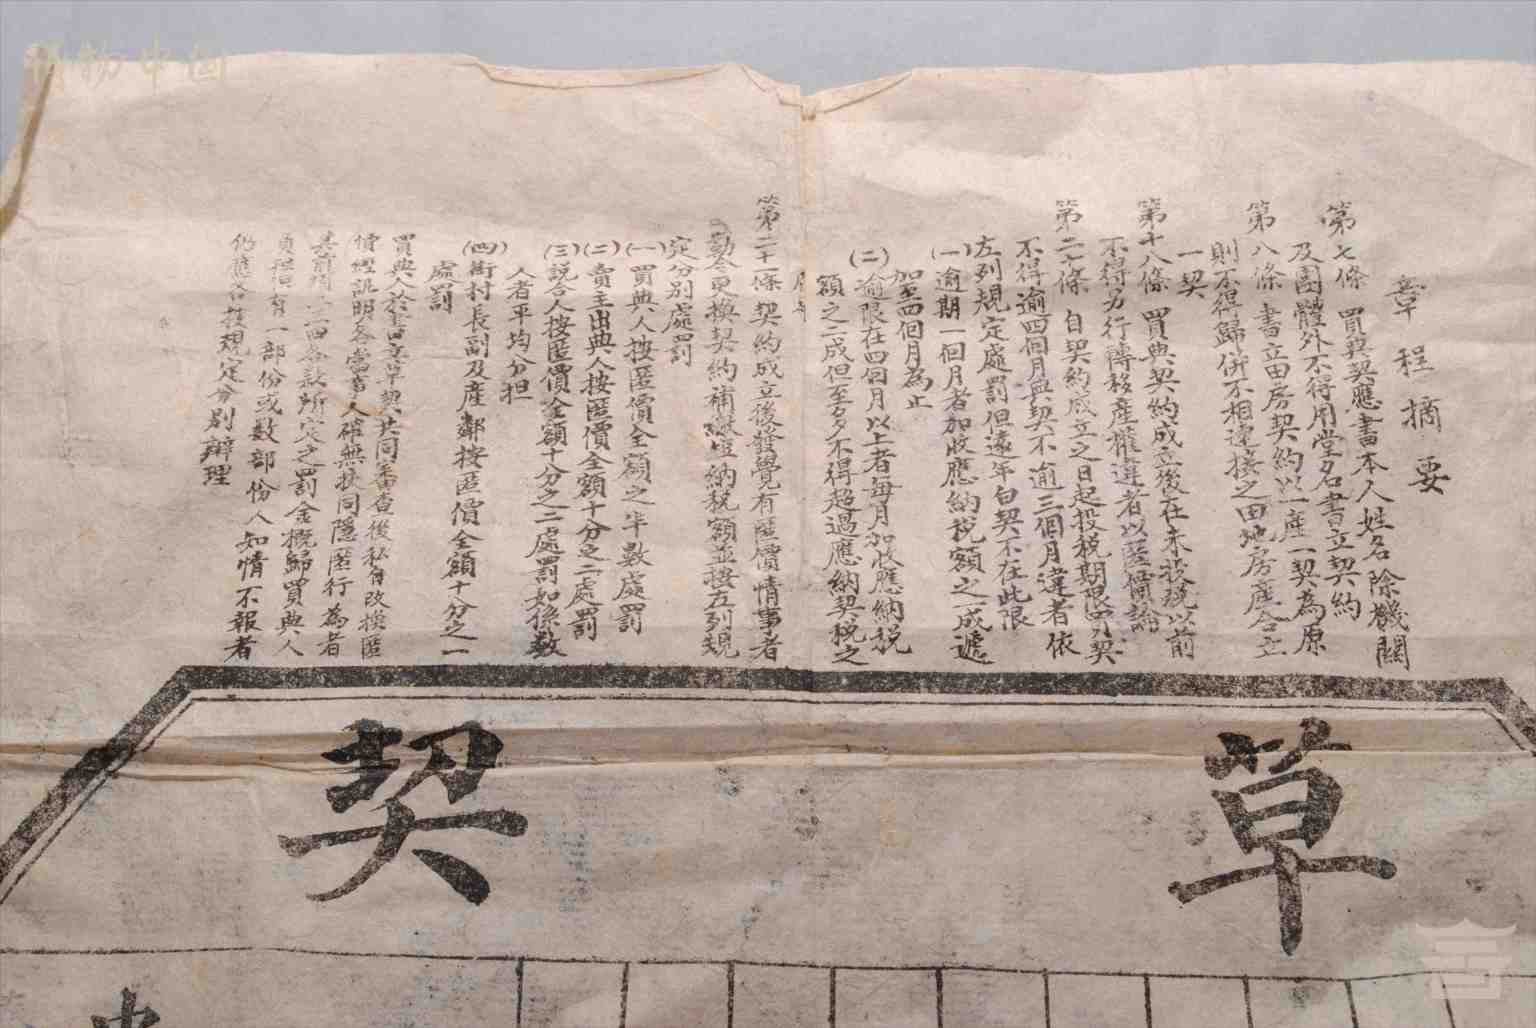 章程摘要
第七條 買典契應書本人姓名除機關
及團體外不得用堂名書立契約
第八條 書立田房契約以一產一契為原
則不得歸併不相連接之田地房產合立
一契
第十八條 買典契約成立後在未投稅以前
不得另行轉移產權違者以匿價論
第二十條 自契約成立之日起投稅期限買契
不得逾四個月典契不逾三個月違者依
左列規定處罰但遠年白契不在此限
(一)逾期一個月者加收應納稅額之一成遞
加至四個月為止
(二)逾限在四個月以上者每月加收應納稅
額之二成但至多不得超過應納契稅之
第二十一條 契約成立後發覺有匿價情事者
勒令更換契約補繳短納稅額並按左列規
定分別處罰
(一)買典人按匿價全額之半數處罰
(二)賣主出典人按匿價全額十分之二處罰
(三)說合人按匿價全額十分之二處罰如係數
人者平均分担
(四)街村長副及產鄰按匿價全額十分之一
處罰
買典人於書立草契共同審查後私自改換匿
價經訊明各當事人確無扶同隱匿行為者
其前項二三四各款所定之罰金概歸買典人
負担但有一部份或數部份人知情不報者
仍應各按規定分別辦理
草契
博物中国